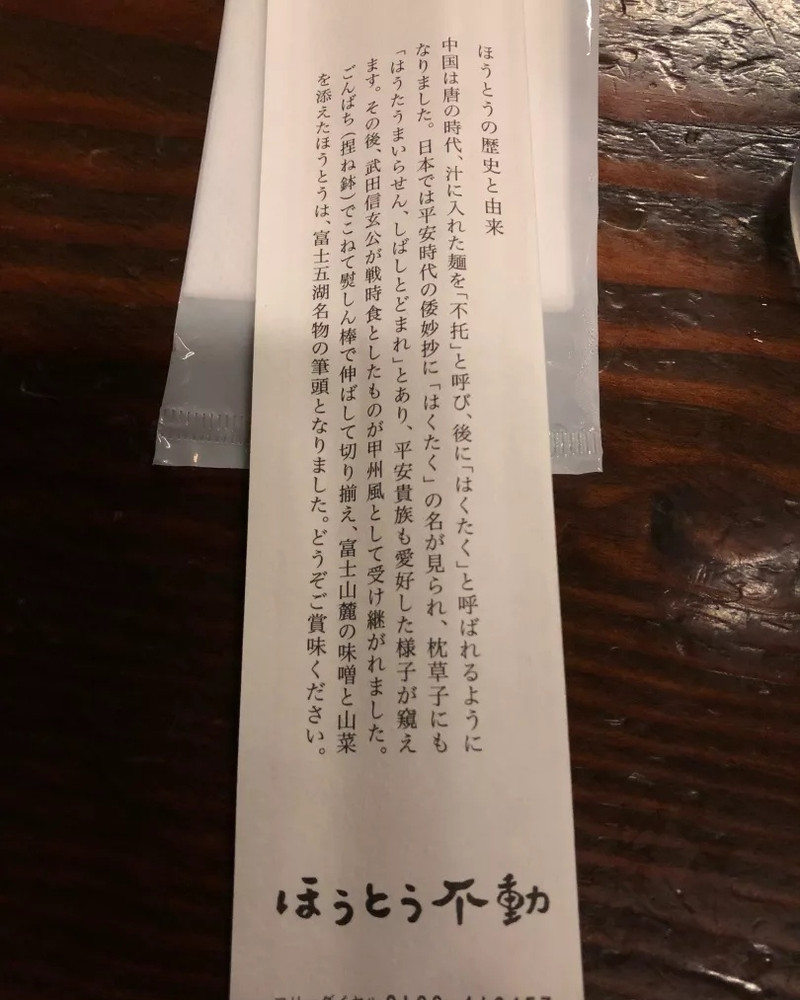 ほうとうの歴史と由来
中国は唐の時代、汁に入れた麺を「不托」と呼び、後に「はくたく」と呼ばれるように
なりました。日本では平安時代の倭妙抄に「はくたく」の名が見られ、枕草子にも
「はうたうまいらせん、しばしとどまれ」とあり、平安貴族も愛好した様子が窺え
ます。その後、武田信玄公が戦時食としたものが甲州風として受け継がれました。
ごんばち(捏ね鉢)でこねて熨しん棒で伸ばして切り揃え、富士山麓の味噌と山菜
を添えたほうとうは、富士五湖名物の筆頭となりました。どうぞご賞味ください。
ほうとう不動